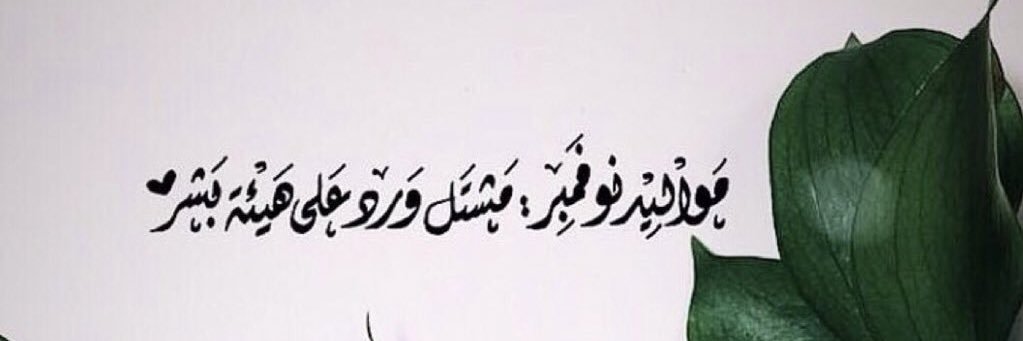 مَوْاليِْد نوفَمبِر : مَشتَل وَرد عَلى هَيْئة بَشر♥